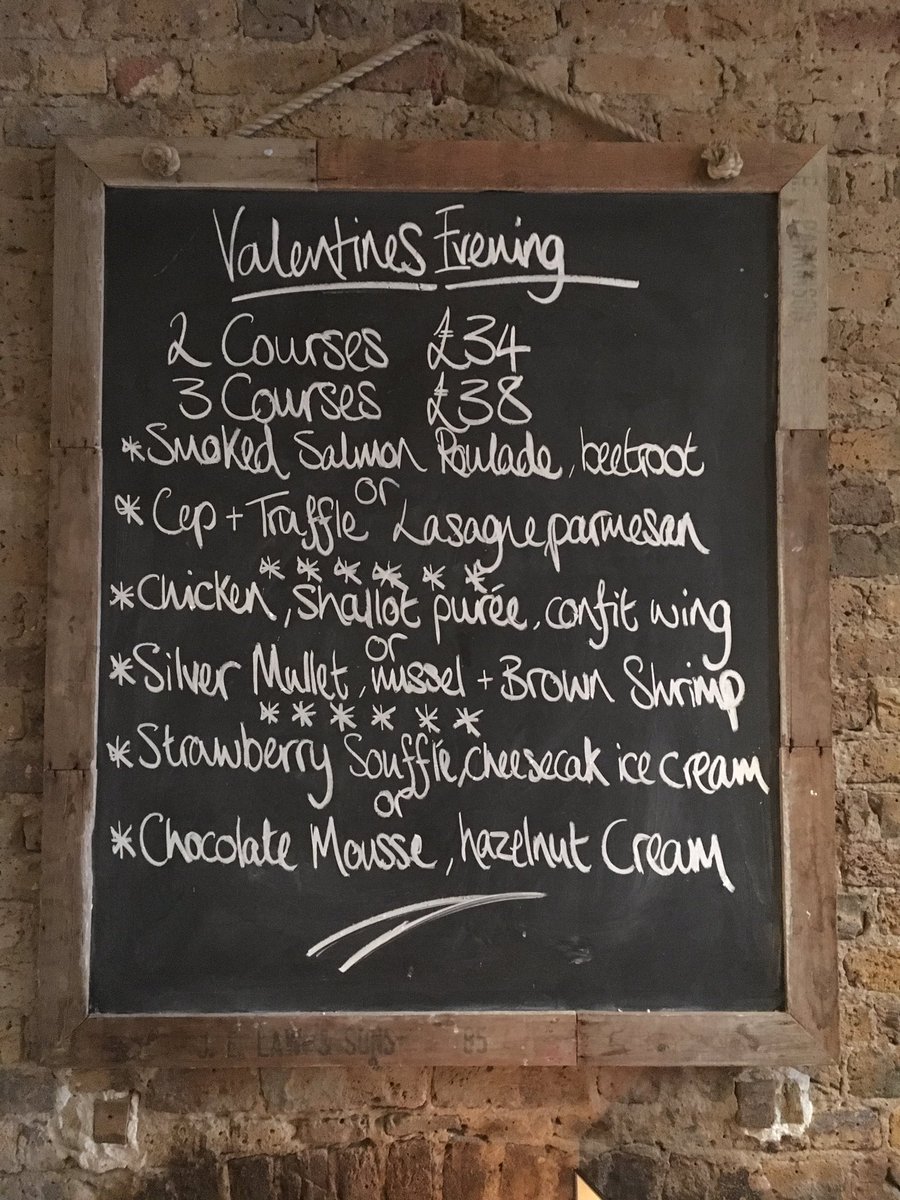 Valentines Evening
2 Courses £34
3 Courses £38
*Smoked Salmon Roulade, beetroot
or
*Cep + Truffle Lasagne, parmesan
* * * * * *
*Chicken, Shallot purée, confit wing
or
*Silver Mullet, mussel + Brown Shrimp
* * * * * *
*Strawberry Soufflé, cheesecak ice cream
or
*Chocolate Mousse, hazelnut Cream
SONS 85